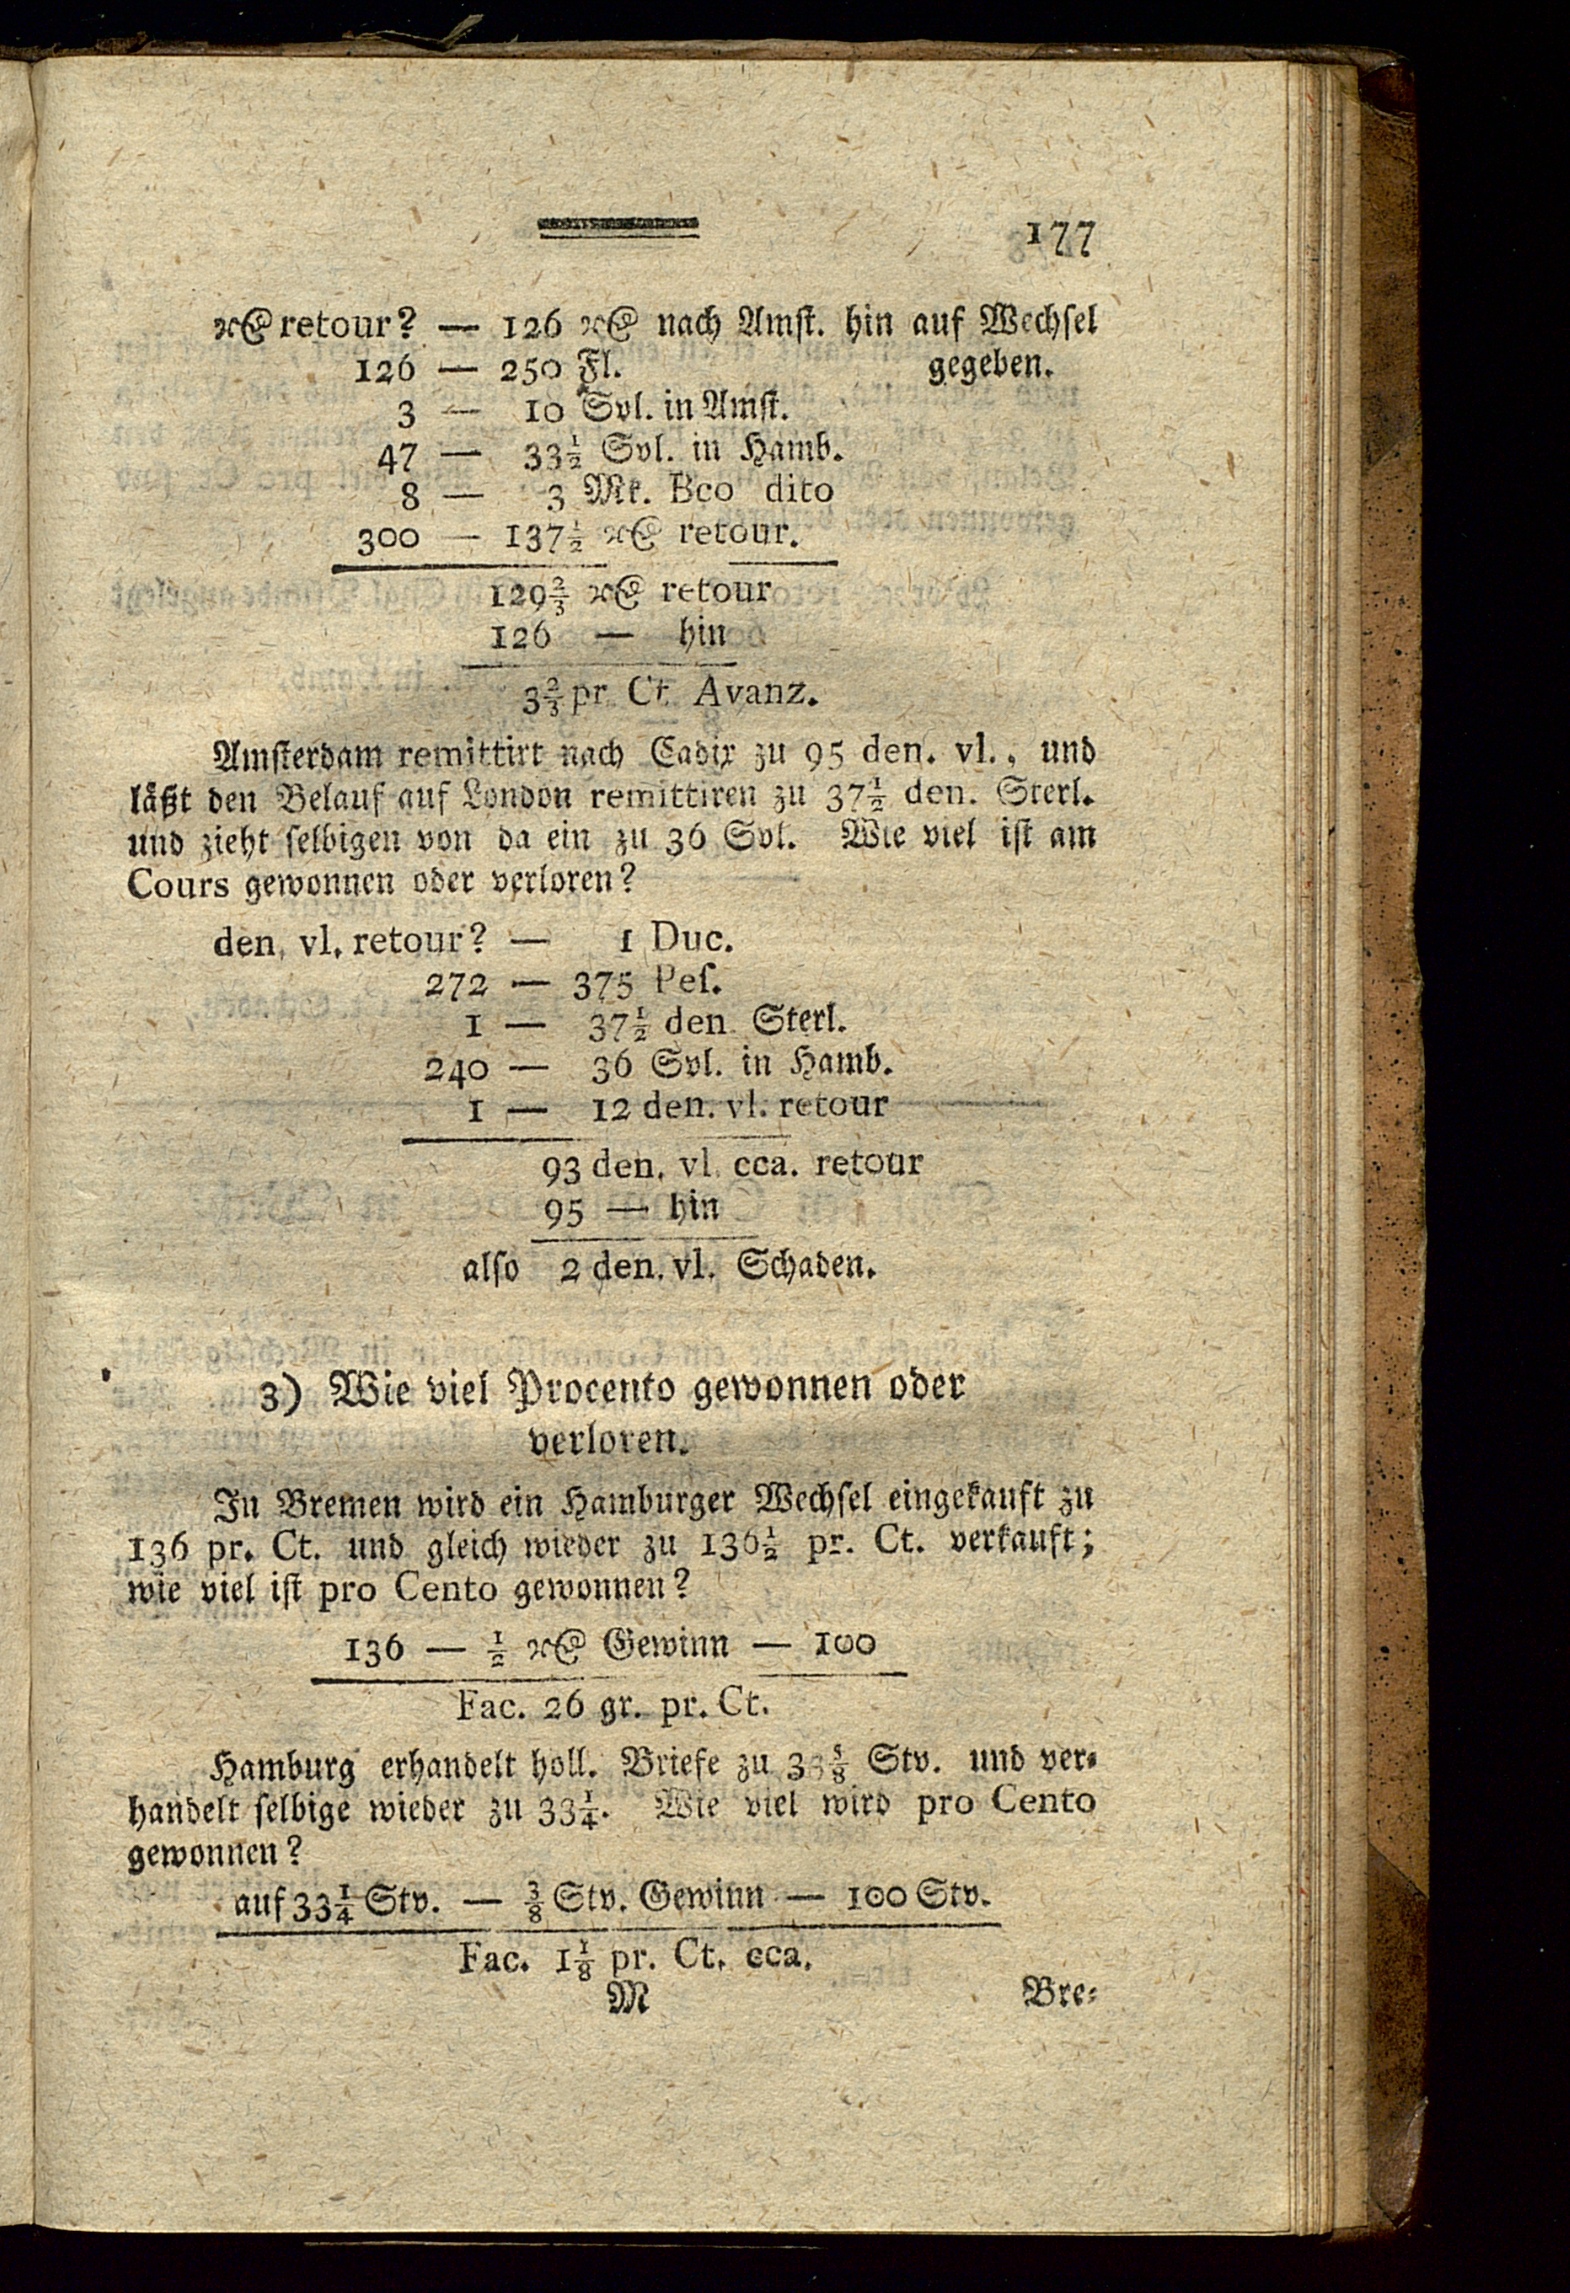 177
Rthlr. retour? — 126 Rthlr. nach Amst. hin auf Wechsel
126 — 250 Fl. gegeben.
3 — 10 Svl. in Amst.
47 — 33½ Svl. in Hamb.
8 — 3 Mk. Bco dito
300 — 137½ Rthlr. retour.
129⅔ Rthlr. retour
126 — hin
3⅔ pr Ct Avanz.
Amsterdam remittirt nach Cadix zu 95 den. vl., und
läßt den Belauf auf London remittiren zu 37½ den. Sterl.
und zieht selbigen von da ein zu 36 Svl. Wie viel ist am
Cours gewonnen oder verloren?
den. vl. retour? — 1 Duc.
272 — 375 Pes.
1 — 37½ den Sterl.
240 — 36 Svl. in Hamb.
1 — 12 den. vl. retour
93 den. vl. cca. retour
95 — hin
also 2 den. vl. Schaden.
3) Wie viel Procento gewonnen oder
verloren.
In Bremen wird ein Hamburger Wechsel eingekauft zu
136 pr. Ct. und gleich wieder zu 136½ pr. Ct. verkauft;
wie viel ist pro Cento gewonnen?
136 — ½ Rthlr. Gewinn — 100
Fac. 26 gr. pr. Ct.
Hamburg erhandelt holl. Briefe zu 33⅝ Stv. und ver-
handelt selbige wieder zu 33¼. Wie viel wird pro Cento
gewonnen?
auf 33¼ Stv. — ⅜ Stv. Gewinn — 100 Stv.
Fac. 1⅛ pr. Ct. cca.
M Bre-